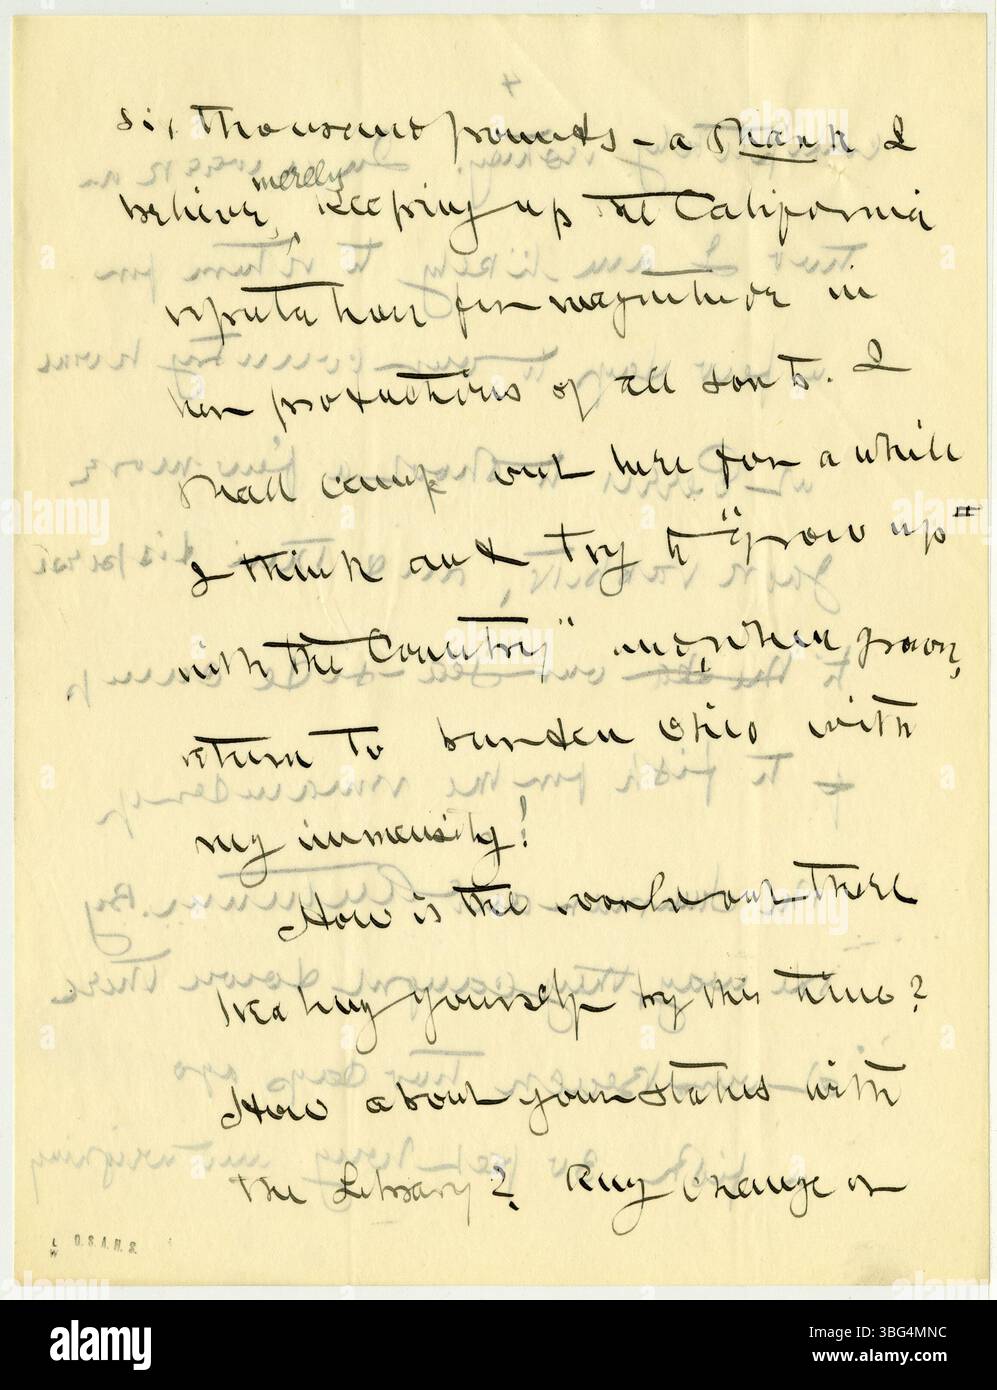 six thousand pounds - a shark I
merely
believe, keeping up the California
reputation for magnitude in
her productions of all sorts. I
shall camp out here for a while
I think and try to "grow up"
with the Country" and, when grown,
return to burden Ohio with
my immensity!
How is the world out there
treating yourself by this time?
How about your status with
the Library? Any change or
O.S.A.H.S.
alamy
Image ID: 3BG4MNC
www.alamy.com